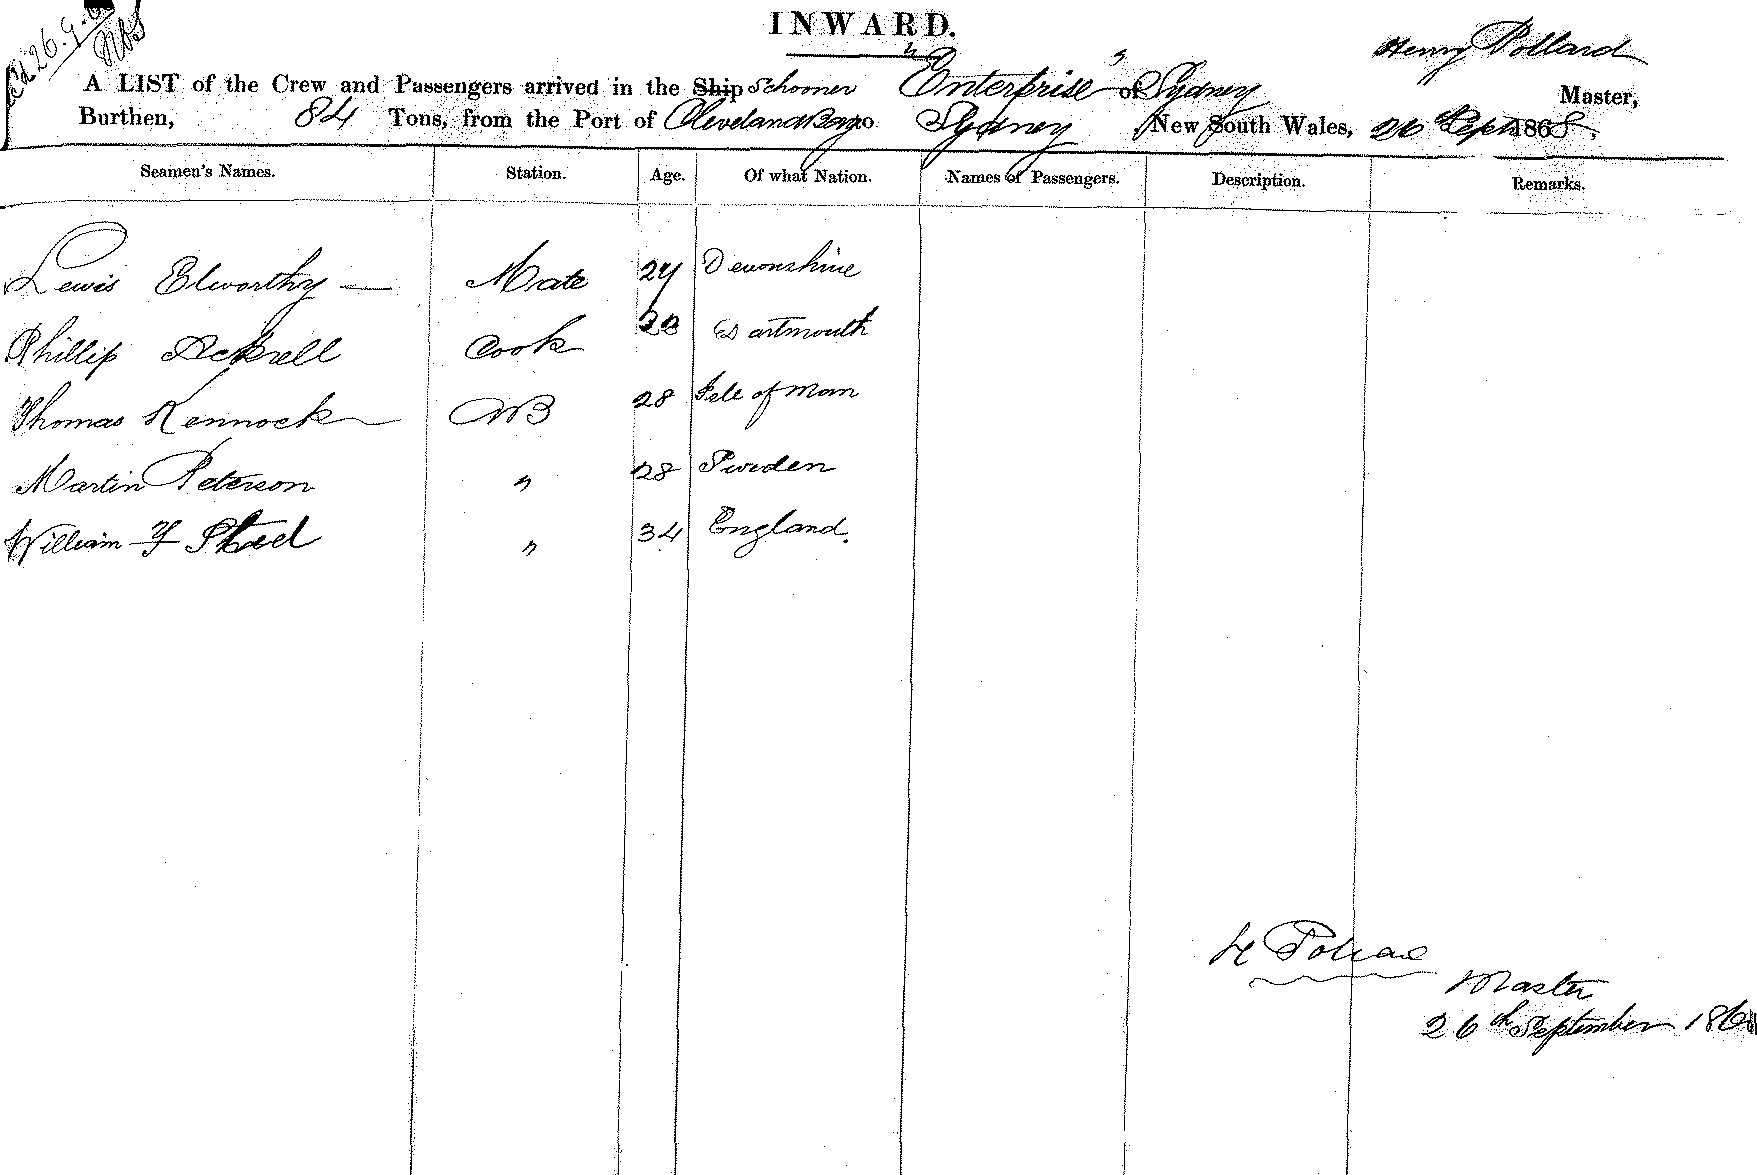 INWARD.
26.9.
Henry Pollard
A LIST of the Crew and Passengers arrived in the Ship Schooner "Enterprise" of Sydney Master,
Burthen, 84 Tons, from the Port of Cleveland Bay to Sydney New South Wales, 26 Sept 1868,
Seamen's Names. Station. Age. Of what Nation. Names of Passengers. Description. Remarks.
Lewis Elworthy — Mate Devonshire
Phillip Ackrell Cook Dartmouth
Thomas Kennock AB 28 Isle of Man
Martin Peterson " 28 Sweden
William " 34 England.
H Pollard
Master
26th September 186